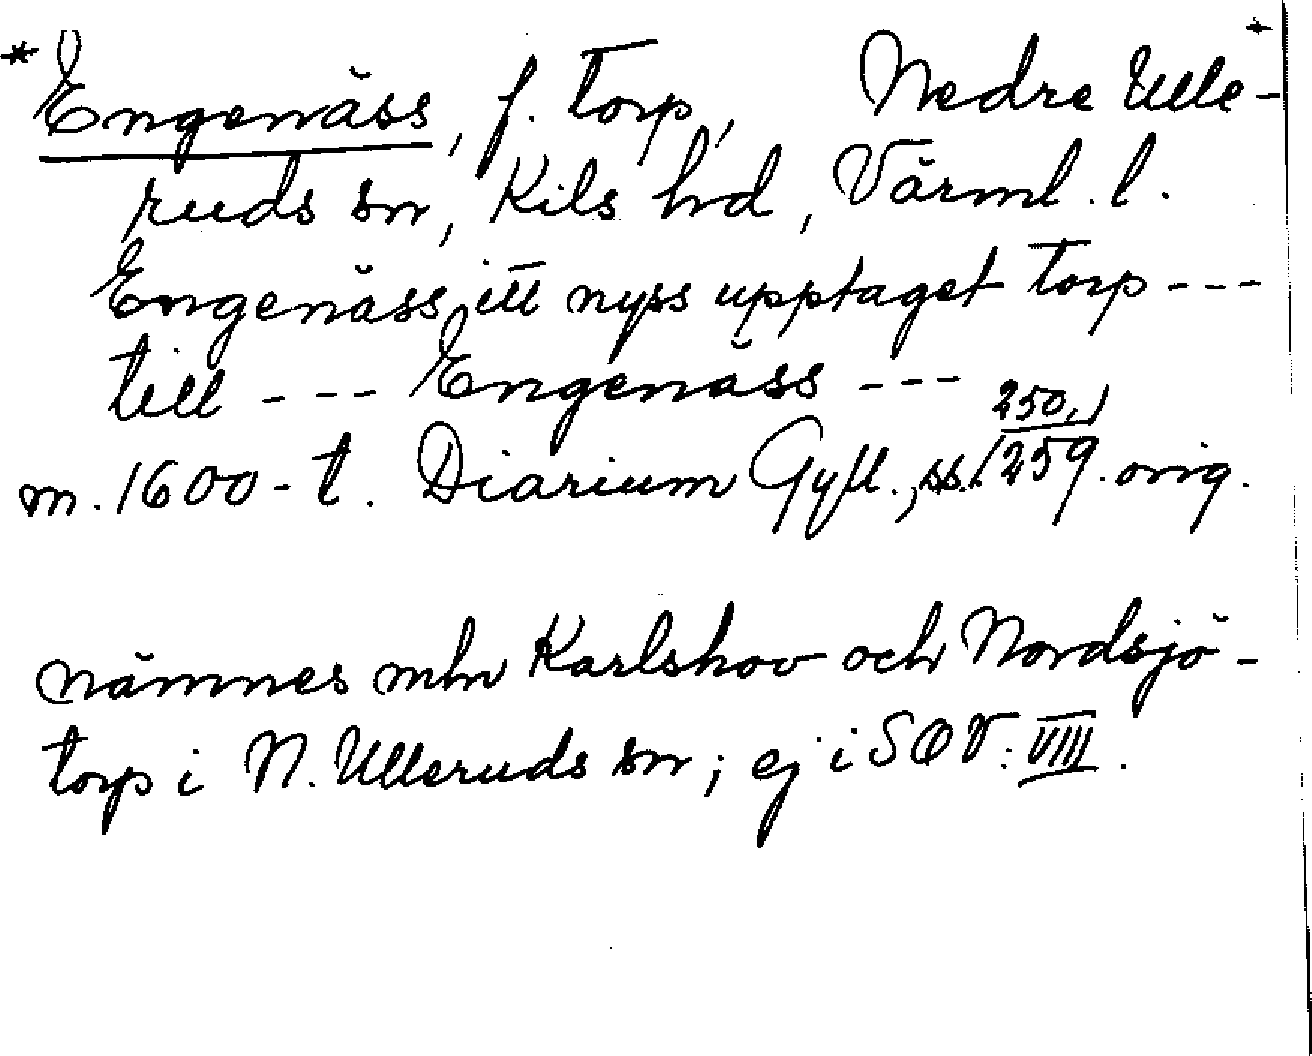 * Engenäss, f. torp, Nedre Ulle- +
ruds sn, Kils hd, Värml. l.
Engenäss, itt nyss upptaget torp ---
till --- Engenäss ---
m. 1600-t. Diarium Gyll., ss. 250, 259. orig.
nämnes mln Karlshov och Nordsjö-
torp i N. Ulleruds sn; ej i SOV: VIII.